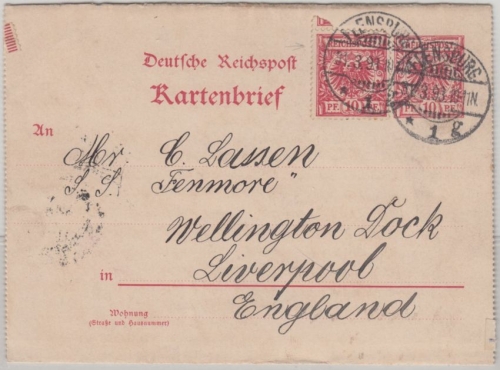 Deutsche Reichspost
Kartenbrief
FLENSBURG
1
FLENSBURG
1 g
PF. 10 PF.
10
An
Mr. C. Lassen
S. S. Fenmore"
Wellington Dock
in Liverpool
England
Wohnung
(Straße und Hausnummer)